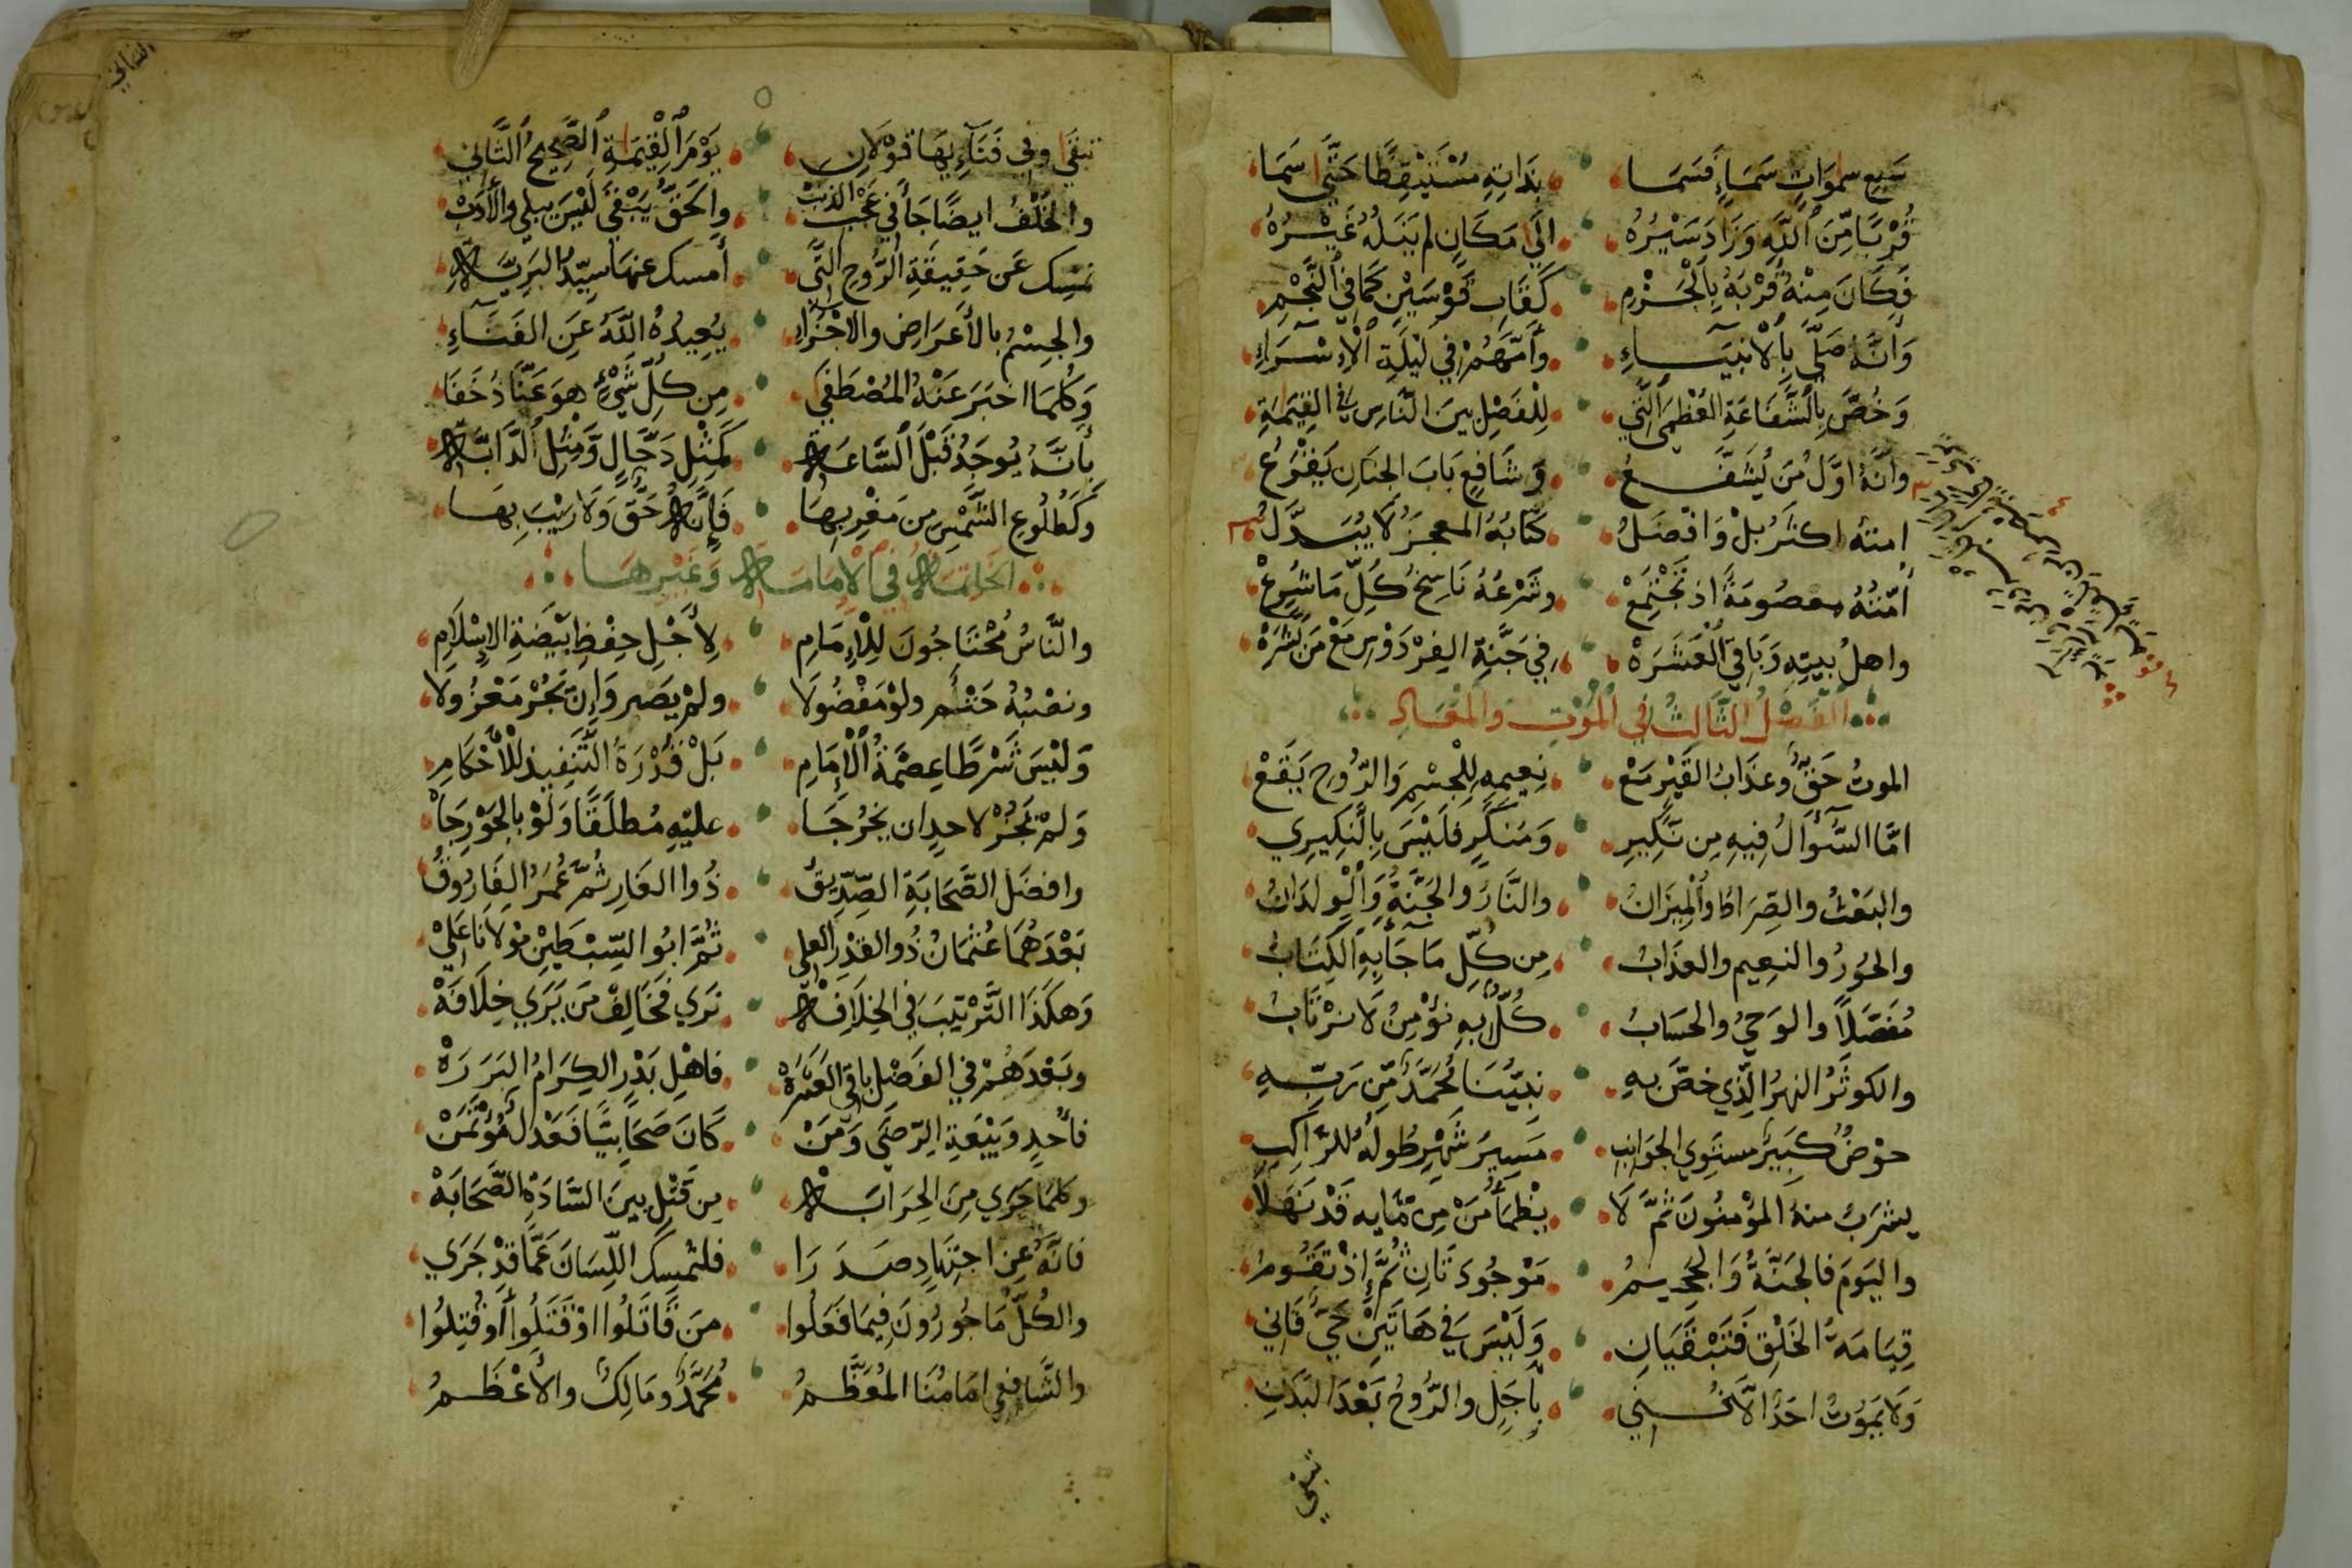 سَبع سموَاتٍ سَمَاءٍ فَسَمَا بذَاتِهِ مُسْتَيْقِظًا حَتَّى سَمَا
قُرْبًا مِّنَ ٱللَّهِ وَزَادَ سَيْرُهُ الَى مَكَانٍ لم يَنَلْهُ غَيْرُهُ
فَكَانَ مِنْهُ قُرْبَهُ بِٱلْجَزْمِ كَقَابِ قَوْسَيْنِ كَمَا فِي ٱلنَّجْمِ
وَأَنَّهُ صَلَّى بِٱلانبيَاءِ وأَمَّهُمْ فِي لَيْلَةِ ٱلْاِسْرَاءِ
وَخُصَّ بِٱلشَّفَاعَةِ العُظْمَى ٱلَّتِي لِلْفَصْلِ بينَ النَّاسِ في القِيٰمَةِ
وأنَّهُ اوَّلُ مَن يُشَفَّعُ وَشَافِعٍ بَابَ الجنَانِ يَقْرَعُ
امتهُ اكثَرُ بلْ وَافْضَلُ كتَابُهُ المعجزُ لَا يُبَدَّلُ
أمَّتُهُ معصُومَةً اذ تَجْتَمِعْ وشَرْعُهُ نَاسِخُ كُلِّ مَا شُرِعْ
واهلُ بيتِهِ وَبَاقِي ٱلْعَشَرَهْ فِي جَنَّةِ الفِرْدَوْسِ مَعْ مَن بَشَّرَهْ
الفَصْلُ الثَّالثُ في المَوْتِ والمَعَادِ
الموتُ حَقٌّ وعذَابُ القَبْرِ مَعْ نعيمِهِ لِلْجِسْمِ وَالرُّوحِ يَقَعْ
امَّا السُّؤَالُ فِيهِ مِن نَّكِيرِ وَمُنكَرٍ فلَيْسَ بِالنكِيرِي
والبَعْثُ والصِّرَاطُ وٱلْمِيزَانُ والنَّارُ والجَنَّةُ وَٱلْوِلدَانُ
والحُورُ والنعِيم والعذَابُ مِن كُلِّ مَا جَآ بِهِ ٱلْكِتَابُ
مُفَصَّلاً والوَحيُ والحسَابُ كُلٌّ بهِ نؤْمِنُ لَا نرْتَابُ
والكوثَرُ النهرُ الَّذِي خصَّ بهِ نبِيُّنَا مُحَمَّدٌ مِّن رَبِّهِ
حوْضٌ كبِيرٌ مستوِي الجوَانبِ مَسِيرَ شَهْرٍ طُولُهُ للرَّاكِبِ
يشرَبُ منهُ المؤْمِنُونَ ثمَّ لَا يظْمَأُ مَنْ مِن مَّايِهِ قَدْ نَهَلَا
واليَومَ فالجَنَّةُ وَالجَحِيمُ مَوْجُودَتَانِ ثُمَّ إِذْ تقُومُ
قِيَامَةُ الخَلْقِ فَتَبْقَيَانِ وَلَيْسَ فِي هَاتَيْنِ حَيٌّ فَاني
وَلَا يَمُوتُ احَدٌ الَّا بأَجَلٍ والرُّوحُ بَعْدَ البَدَنِ
تبقى
الثاني
تبقَى وفي فَنَآءِيهَا قوْلَانِ يَوْمَ ٱلْقِيٰمَةِ ٱلصَّحِيحُ ٱلثَّانِي
والخُلْفُ ايضًا جَآ في عَجْبِ الذنَبْ والحَقُّ يَبْقَى ليْسَ يبلى والأدَبْ
نمسِك عَن حَقِيقَةِ الرُّوحِ الَّتِي أمسك عنهَا سيِّدُ البرِيَّةِ
والجِسْمُ بالأَعرَاضِ والاجْزَاءِ يُعِيدُهُ اللَّهُ عَنِ الفَنَآءِ
وَكُلمَا اخبَرَ عَنْهُ المُصْطَفَى مِن كُلِّ شَيْءٍ هوَ عَنَّا ذُخَفَا
بِأَنَّهُ يُوجَدُ قَبْلَ ٱلسَّاعَةِ كَمِثْلِ دَجَّالٍ وَّمِثْلِ ٱلدَّابَّةِ
وَكَطُلُوعِ الشَّمْسِ مِن مَغْرِبِهَا فَإِنَّهُ حَقٌّ وَلَا رَيْبَ بِهَا
الخاتمة في الامامة وَغيْرهَا
والنَّاسُ مُحْتَاجُونَ لِلْإِمَامِ لِأَجْلِ حِفْظِ بَيْضَةِ الإِسْلَامِ
ونصْبُهُ حَتْم ولوْ مَفْضُولَا ولمْ يَصِر وَإِن يَّجُرْ مَعْزُولَا
وَلَيْسَ شَرْطًا عِصْمَةُ ٱلْإِمَامِ بَلْ قُدْرَةُ التَّنفِيذِ للْأَحْكَامِ
وَلمْ يَجُزْ لاحدٍ ان يخرُجَا عليْهِ مُطلَقًا وَلَوْ بالجَوْرِ جَا
وافضَل الصَّحَابَةِ الصِّدِّيقُ ذُوا الغَارِ ثُمَّ عُمَرُ الفَارُوقُ
بَعْدَهُمَا عُثمَانُ ذُو القَدْرِ العلي ثُمَّ ابُو السِّبْطَيْنِ مَوْلَانَا عَلِي
وَهكَذَا التَّرْتِيبَ فِي الخِلَافَةِ نرَى فَخَالِفْ مَن يَرَى خِلَافَهْ
وبَعْدَهُمْ فِي الفَضْلِ باقِي العَشَرَهْ فاهْلِ بَدْرِ الكِرَامُ البَرَرَهْ
فأُحُدٍ وَبَيْعَةِ الرِّضَى وَمَنْ كَانَ صَحَابِيًّا فَعَدْلٌ مُؤْتَمَنْ
وكلمَا جَرَى مِنَ الحِرَابَةِ مِن قَتْلٍ بينَ السَّادَةِ الصَّحَابَهْ
فانَّهُ عن اجتِهَادٍ صَدَرَا فلتُمسِكِ اللِّسَانَ عَمَّا قَدْ جَرَى
والكُلُّ مَاجُورُونَ فِيمَا فَعَلُوا مَن قَاتَلُوا اوْ قَتَلُوا أَوْ قُتِلُوا
والشَّافِعي امَامُنَا المُعَظَّمُ مُحَمَّدٌ ومَالِكٌ والأَعْظَمُ